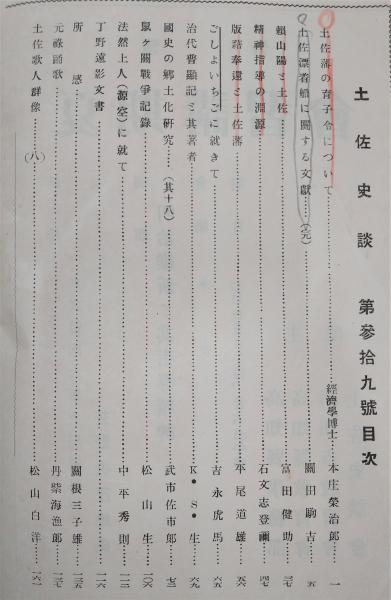 土佐史談 第參拾九號目次
土佐藩の育子令について 經濟學博士 本庄榮治郎 一
土佐漂着船に關する文獻(完) 關田駒吉 五
賴山陽と土佐 富田健助 三七
精神指導の淵源 石文志登爾 四七
版籍奉還と土佐藩 平尾道雄 五六
ごしよいちごに就きて 吉永虎馬 六五
治代普顯記と其著者 K・S・生 六九
國史の鄕土化硏究(其十八) 武市佐市郎 七三
鼠ヶ關戰爭記錄 松山生 一〇六
法然上人(源空)に就て 中平秀則 一一三
丁野遠影文書 一二六
所感 關根三子雄 一三五
元祿誦歌 丹紫海漁郞 一三七
土佐歌人群像(八) 松山白洋 一六一